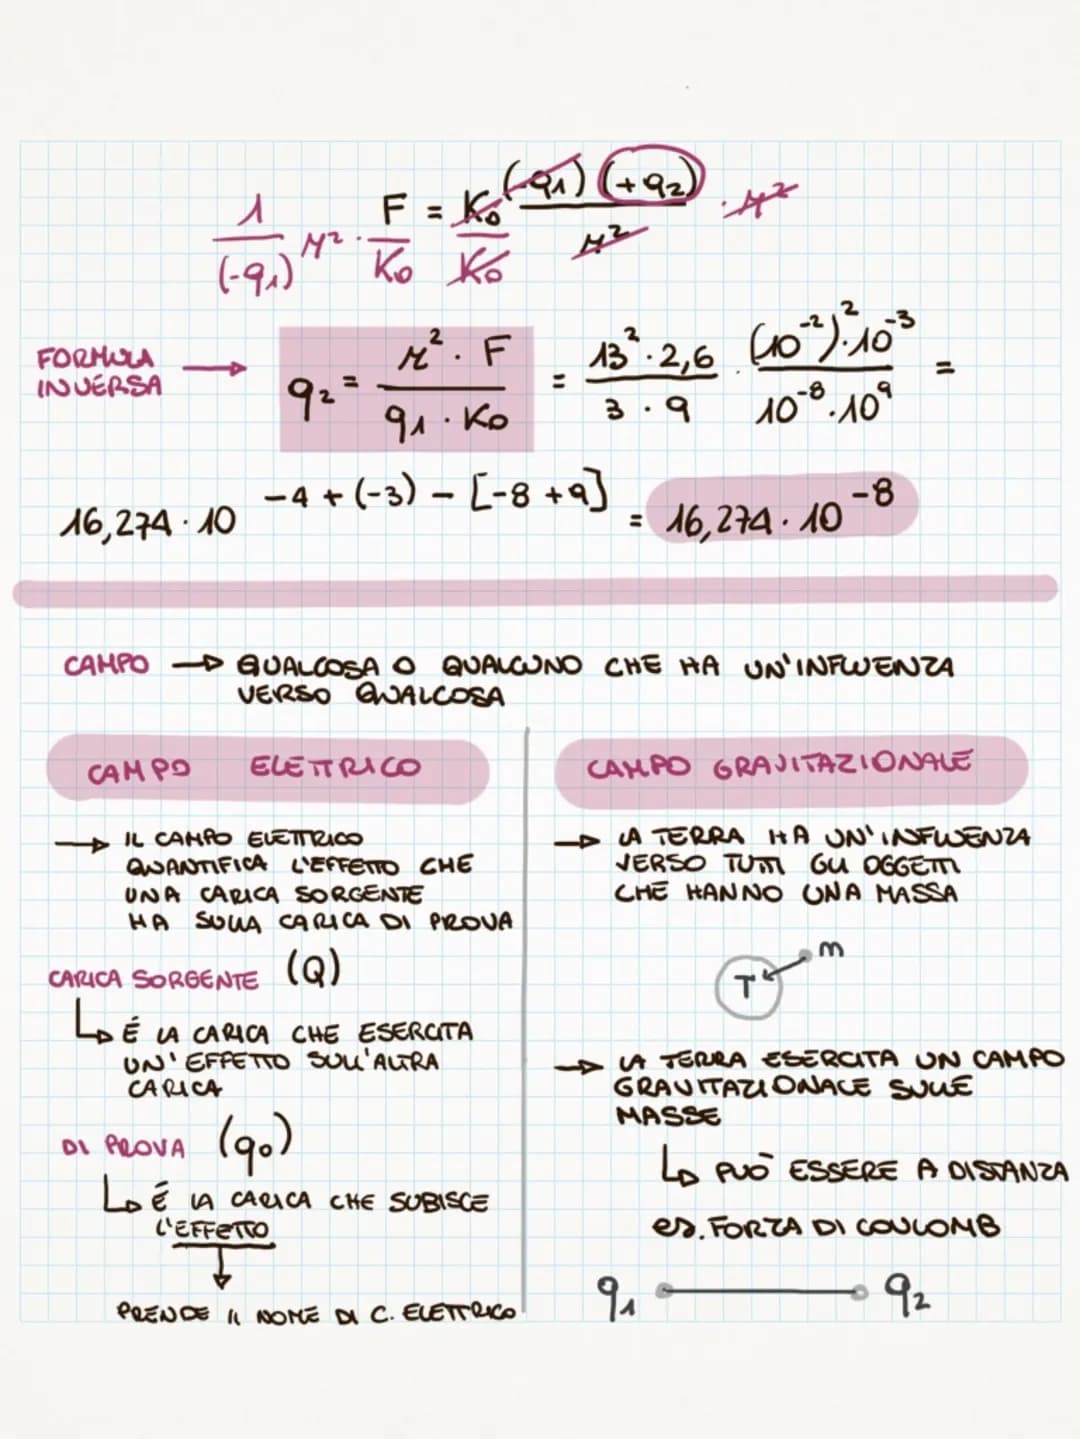 1/(-q1) r² · F/K0 = K0/K0 (-q1)(+q2)/r² · r²
FORMULA
INVERSA → q2 = r² · F / q1 · K0 = 13² · 2,6 / 3 · 9 · (10⁻²)² · 10⁻³ / 10⁻⁸ · 10⁹ =
16,274 · 10^(-4 + (-3) - [-8 + 9]) = 16,274 · 10⁻⁸
CAMPO → QUALCOSA O QUALCUNO CHE HA UN'INFLUENZA
VERSO QUALCOSA
CAMPO ELETTRICO
→ IL CAMPO ELETTRICO
QUANTIFICA L'EFFETTO CHE
UNA CARICA SORGENTE
HA SULLA CARICA DI PROVA
CARICA SORGENTE (Q)
↳ É LA CARICA CHE ESERCITA
UN'EFFETTO SULL'ALTRA
CARICA
DI PROVA (q0)
↳ É LA CARICA CHE SUBISCE
L'EFFETTO
↓
PRENDE IL NOME DI C. ELETTRICO
CAMPO GRAVITAZIONALE
→ LA TERRA HA UN'INFLUENZA
VERSO TUTTI GLI OGGETTI
CHE HANNO UNA MASSA
T m
→ LA TERRA ESERCITA UN CAMPO
GRAVITAZIONALE SULLE
MASSE
↳ PUÒ ESSERE A DISTANZA
es. FORZA DI COULOMB
q1 q2